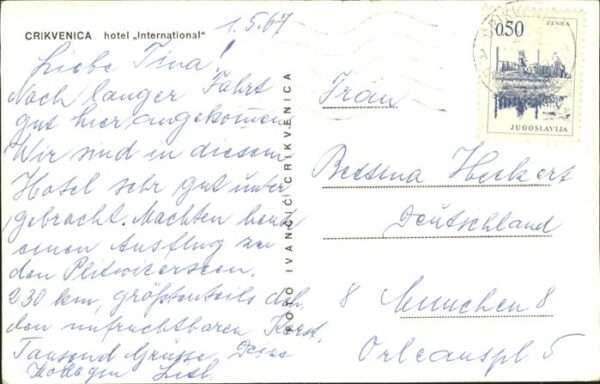 CRIKVENICA hotel „International"
1.5.67
Liebe Tina!
Nach langer Fahrt
gut hier angekommen
Wir sind in diesem
Hotel sehr gut unter
gebracht. Machten heute
einen Ausflug zu
den Plitwizerseen.
230 km, größtenteils dch.
den unfruchtbaren Karst.
Tausend Grüsse, Deine
FOTO IVANČIĆ CRIKVENICA
0.50
ZENICA
JUGOSLAVIJA
Fräu
Bettina Heckert
Deutschland
8 München 8
Orleanspl 5